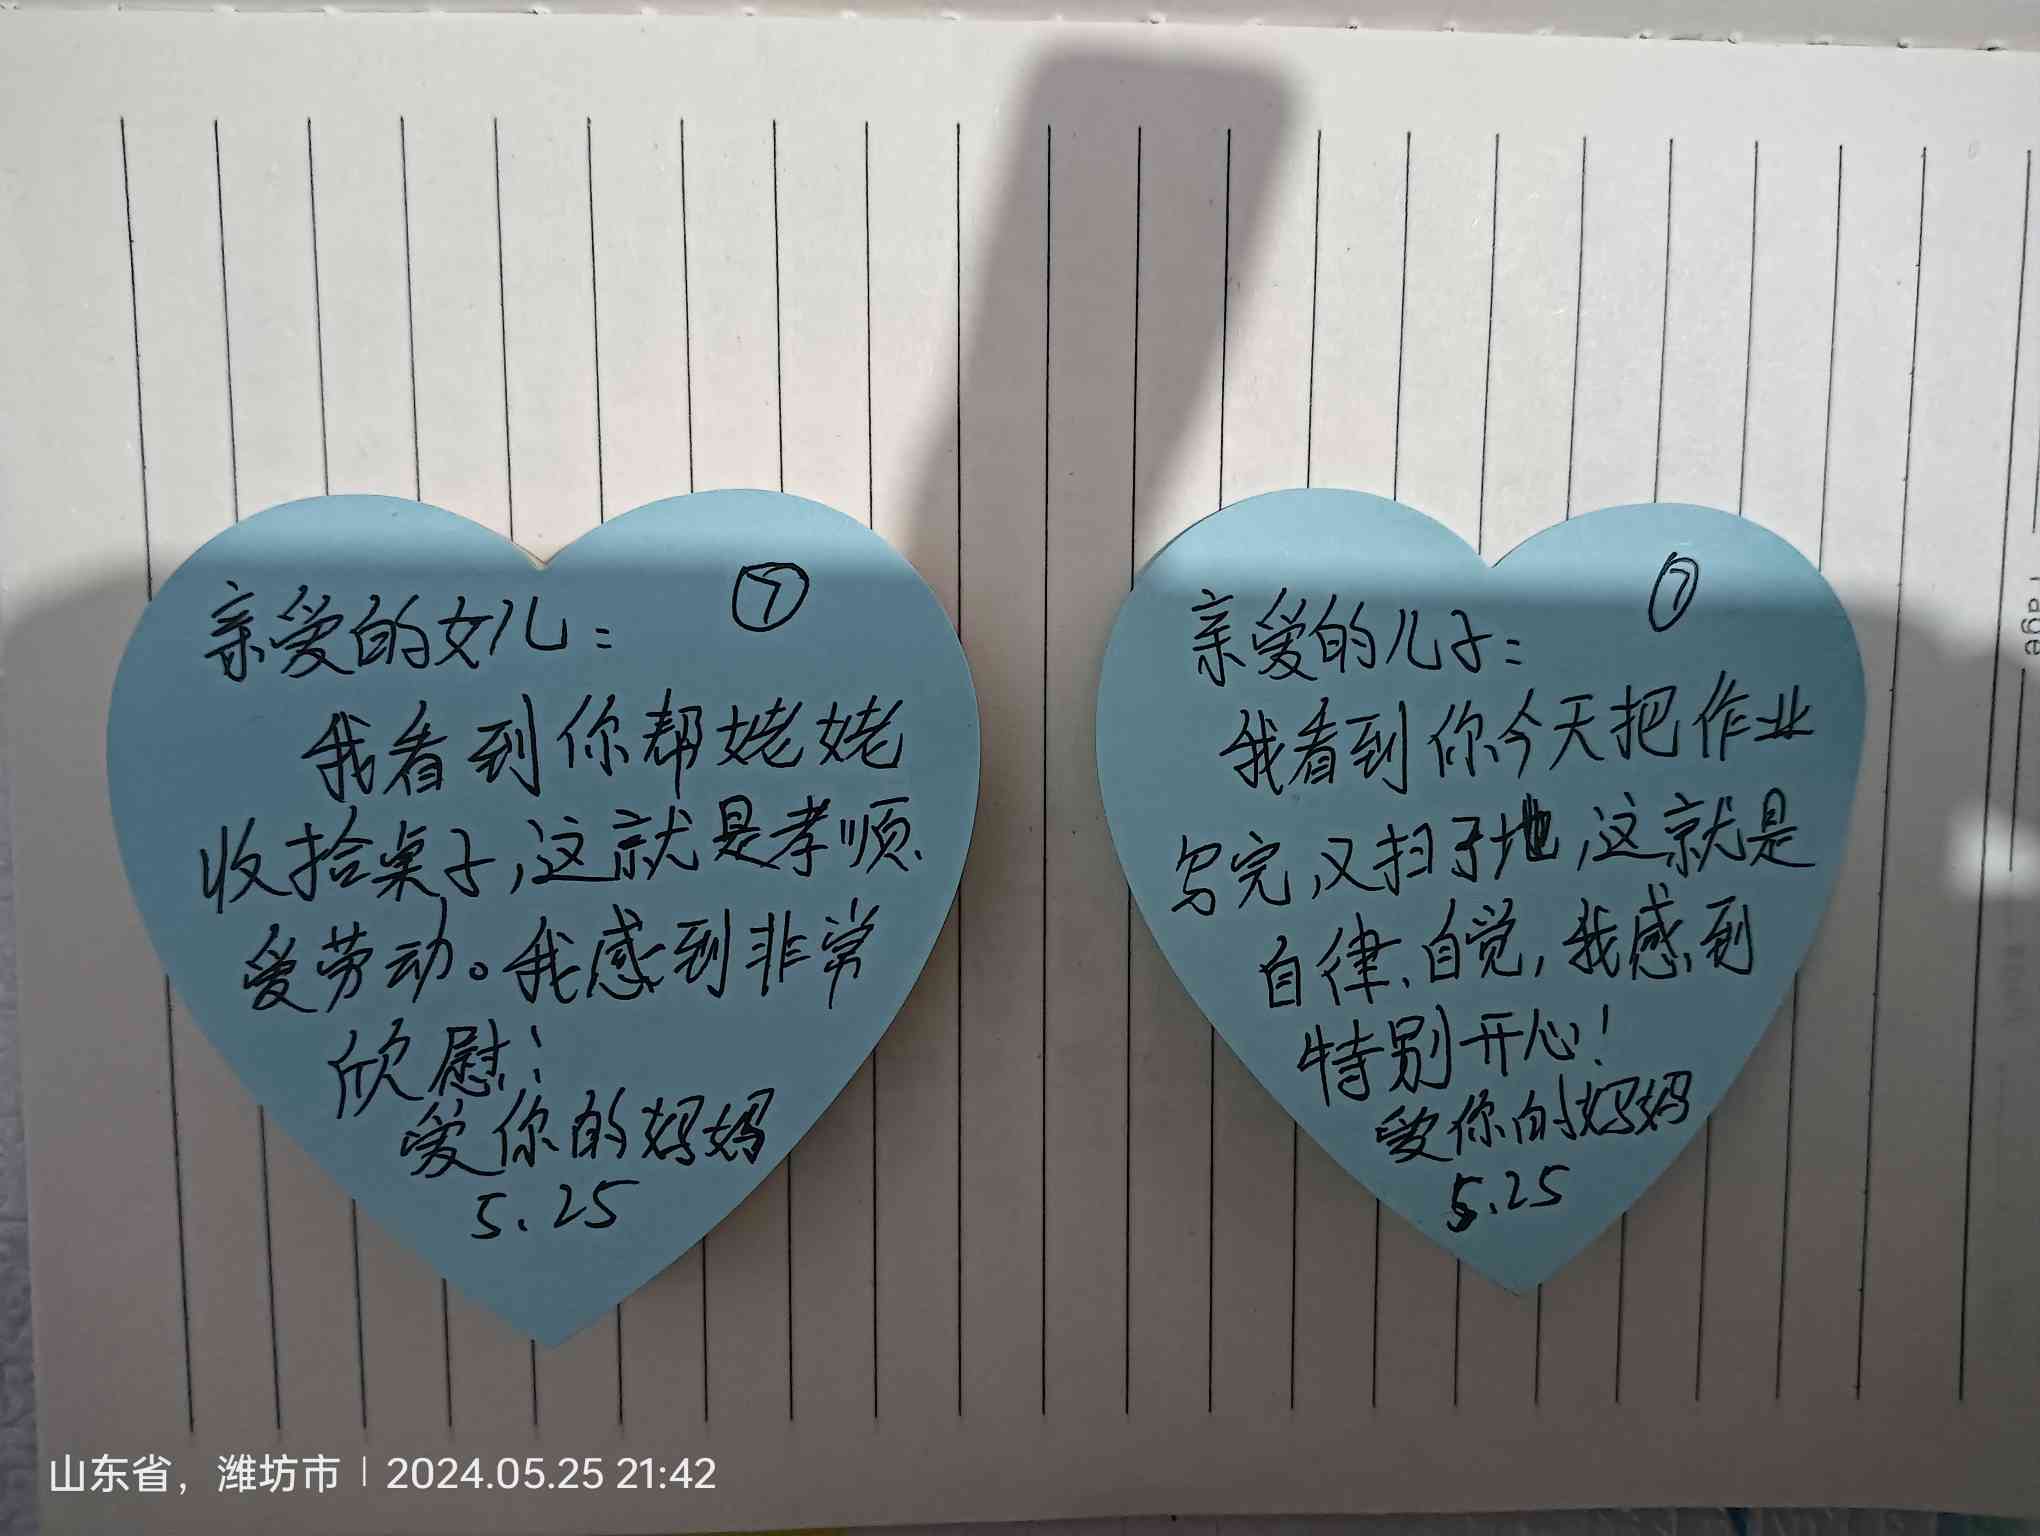 亲爱的女儿：
⑦
我看到你帮姥姥
收拾桌子,这就是孝顺、
爱劳动。我感到非常
欣慰！
爱你的妈妈
5.25
亲爱的儿子：
⑦
我看到你今天把作业
写完,又扫了地,这就是
自律、自觉,我感到
特别开心！
爱你的妈妈
5.25
Page
山东省，潍坊市 | 2024.05.25 21:42